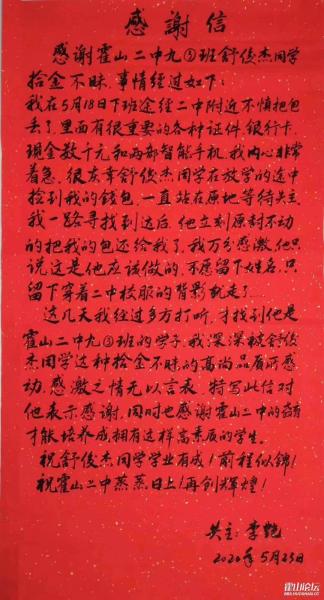 感謝信
感谢霍山二中九③班舒俊杰同学
拾金不昧,事情经过如下:
我在5月18日下班途经二中附近不慎把包
丢了,里面有很重要的各种证件、银行卡、
现金数千元和两部智能手机,我内心非常
着急,很庆幸舒俊杰同学在放学的途中
捡到我的钱包,一直站在原地等待失主,
我一路寻找到达后,他立刻原封不动
的把我的包还给我了,我万分感激,他只
说这是他应该做的,不愿留下姓名,只
留下穿着二中校服的背影就走了.
这几天我经过多方打听,才找到他是
霍山二中九③班的学子,我深深被舒俊
杰同学这种拾金不昧的高尚品质所感
动,感激之情无以言表,特写此信对
他表示感谢,同时也感谢霍山二中的
才能培养成拥有这样高素质的学生。
祝舒俊杰同学学业有成!前程似錦!
祝霍山二中蒸蒸日上!再创辉煌!
失主:李艳
2020年5月23日
霍山论坛